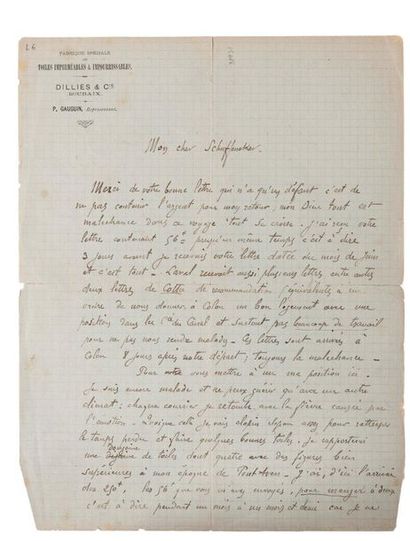 L6
FABRIQUE SPÉCIALE
DE
TOILES IMPERMÉABLES & IMPOURRISSABLES
DILLIES & Cie
ROUBAIX
P. GAUGUIN, Représentant
Mon cher Schuffenecker.
Merci de votre bonne lettre qui n'a qu'un défaut c'est de
ne pas contenir l'argent pour mon retour, mon Dieu tout est
malechance dans ce voyage tout se croise. J'ai reçu votre
lettre contenant 56f presqu'en même temps c'est à dire
3 jours avant je recevais votre lettre datée du mois de juin
et c'est tout - Laval recevait aussi plusieurs lettres entre autres
deux lettres de de recommandation équivalents à un
ordre de nous donner à Colon un bon logement avec une
position dans la Cie du Canal et surtout pas beaucoup de travail
pour ne pas nous rendre malade. Ces lettres sont arrivés à
Colon 8 jours après notre départ; toujours la malechance -
Pour vous mettre à ma position ici.
Je suis encore malade et ne peux guérir qu'avec un autre
climat: chaque courrier je retombe avec la fièvre causée par
l'émotion. Quoique cela je vais clopin clopan assez pour rattraper
le temps perdu et faire quelques bonnes toiles. Je rapporterai
une douzaine de toiles dont quatre avec des figures bien
supérieures à mon époque de Pont-Aven - J'ai, d'ici l'arrivée
des 250f, les 56f que vous m'avez envoyés, pour manger à deux
c'est à dire pendant un mois à un mois et demi car je ne